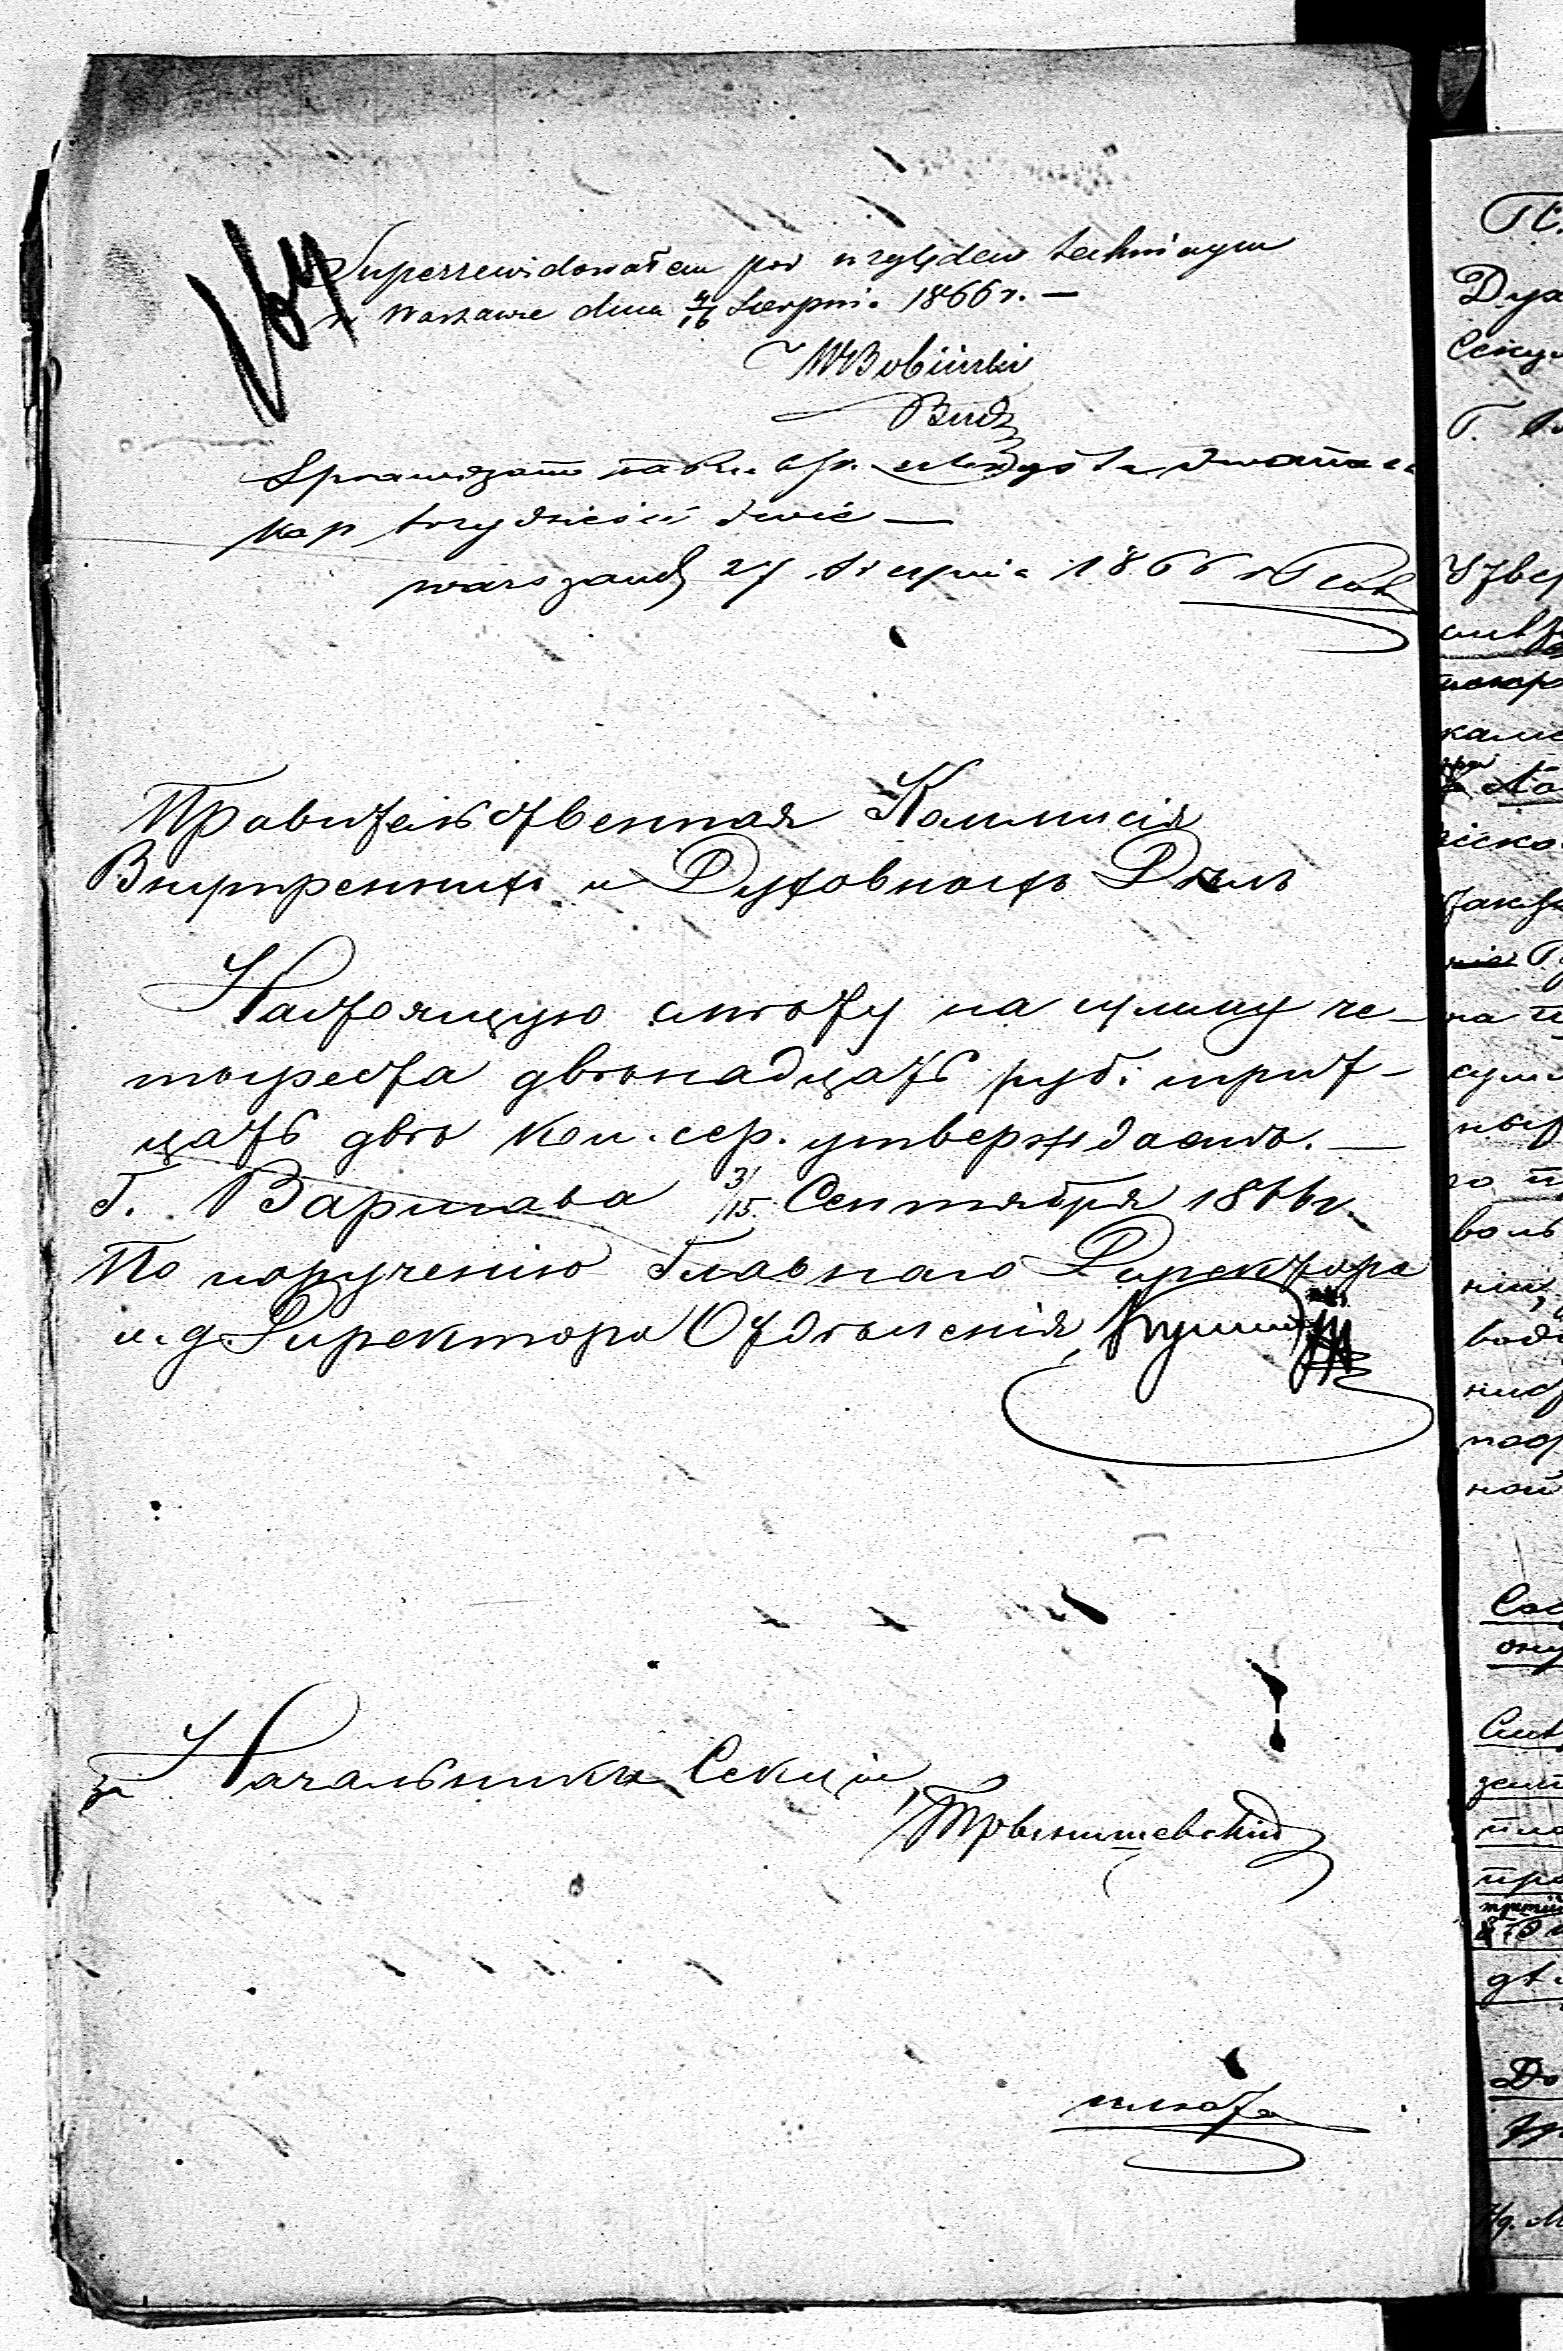 164
Superrewidowałem pod względem technicznym
w Warszawie dnia 4/16 Sierpnia 1866 r. —
Bobiński
Bud
Sprawdzam na Rs. czterysta dwanaście
kop trzydzieści dwie —
warszawa 27 Sierpnia 1866 r
Правительственная Коммисія
Внутреннихъ и Духовныхъ Дѣлъ
Настоящую смѣту на сумму че-
тыреста двѣнадцать руб. трид-
цать двѣ коп. сер. утверждаетъ. —
Г. Варшава 3/15 Сентября 1866 г.
По порученію Главнаго Директора
и. д. Директора Отдѣленія
за Начальника Секціи
П.
Дух
Секц
Г.
Утвер
каме
так
на
сум
воль
ной
До